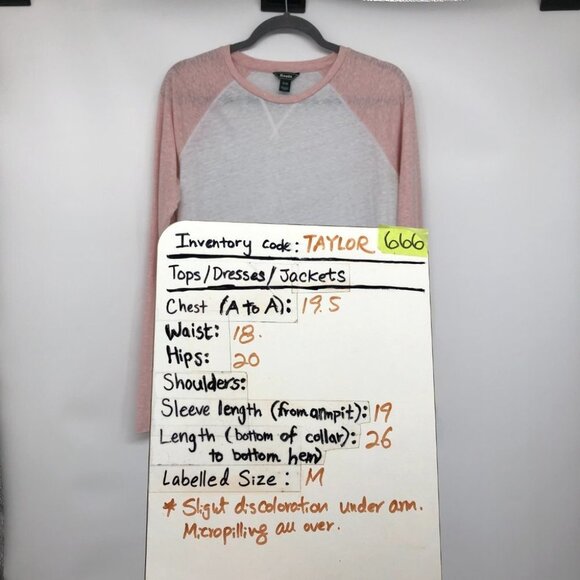 Roots
Inventory code: TAYLOR 666
Tops/Dresses/Jackets
Chest (A to A): 19.5
Waist: 18.
Hips: 20
Shoulders:
Sleeve length (from armpit): 19
Length (bottom of collar): 26
to bottom hem)
Labelled Size: M
* Slight discoloration under arm.
Micropilling all over.